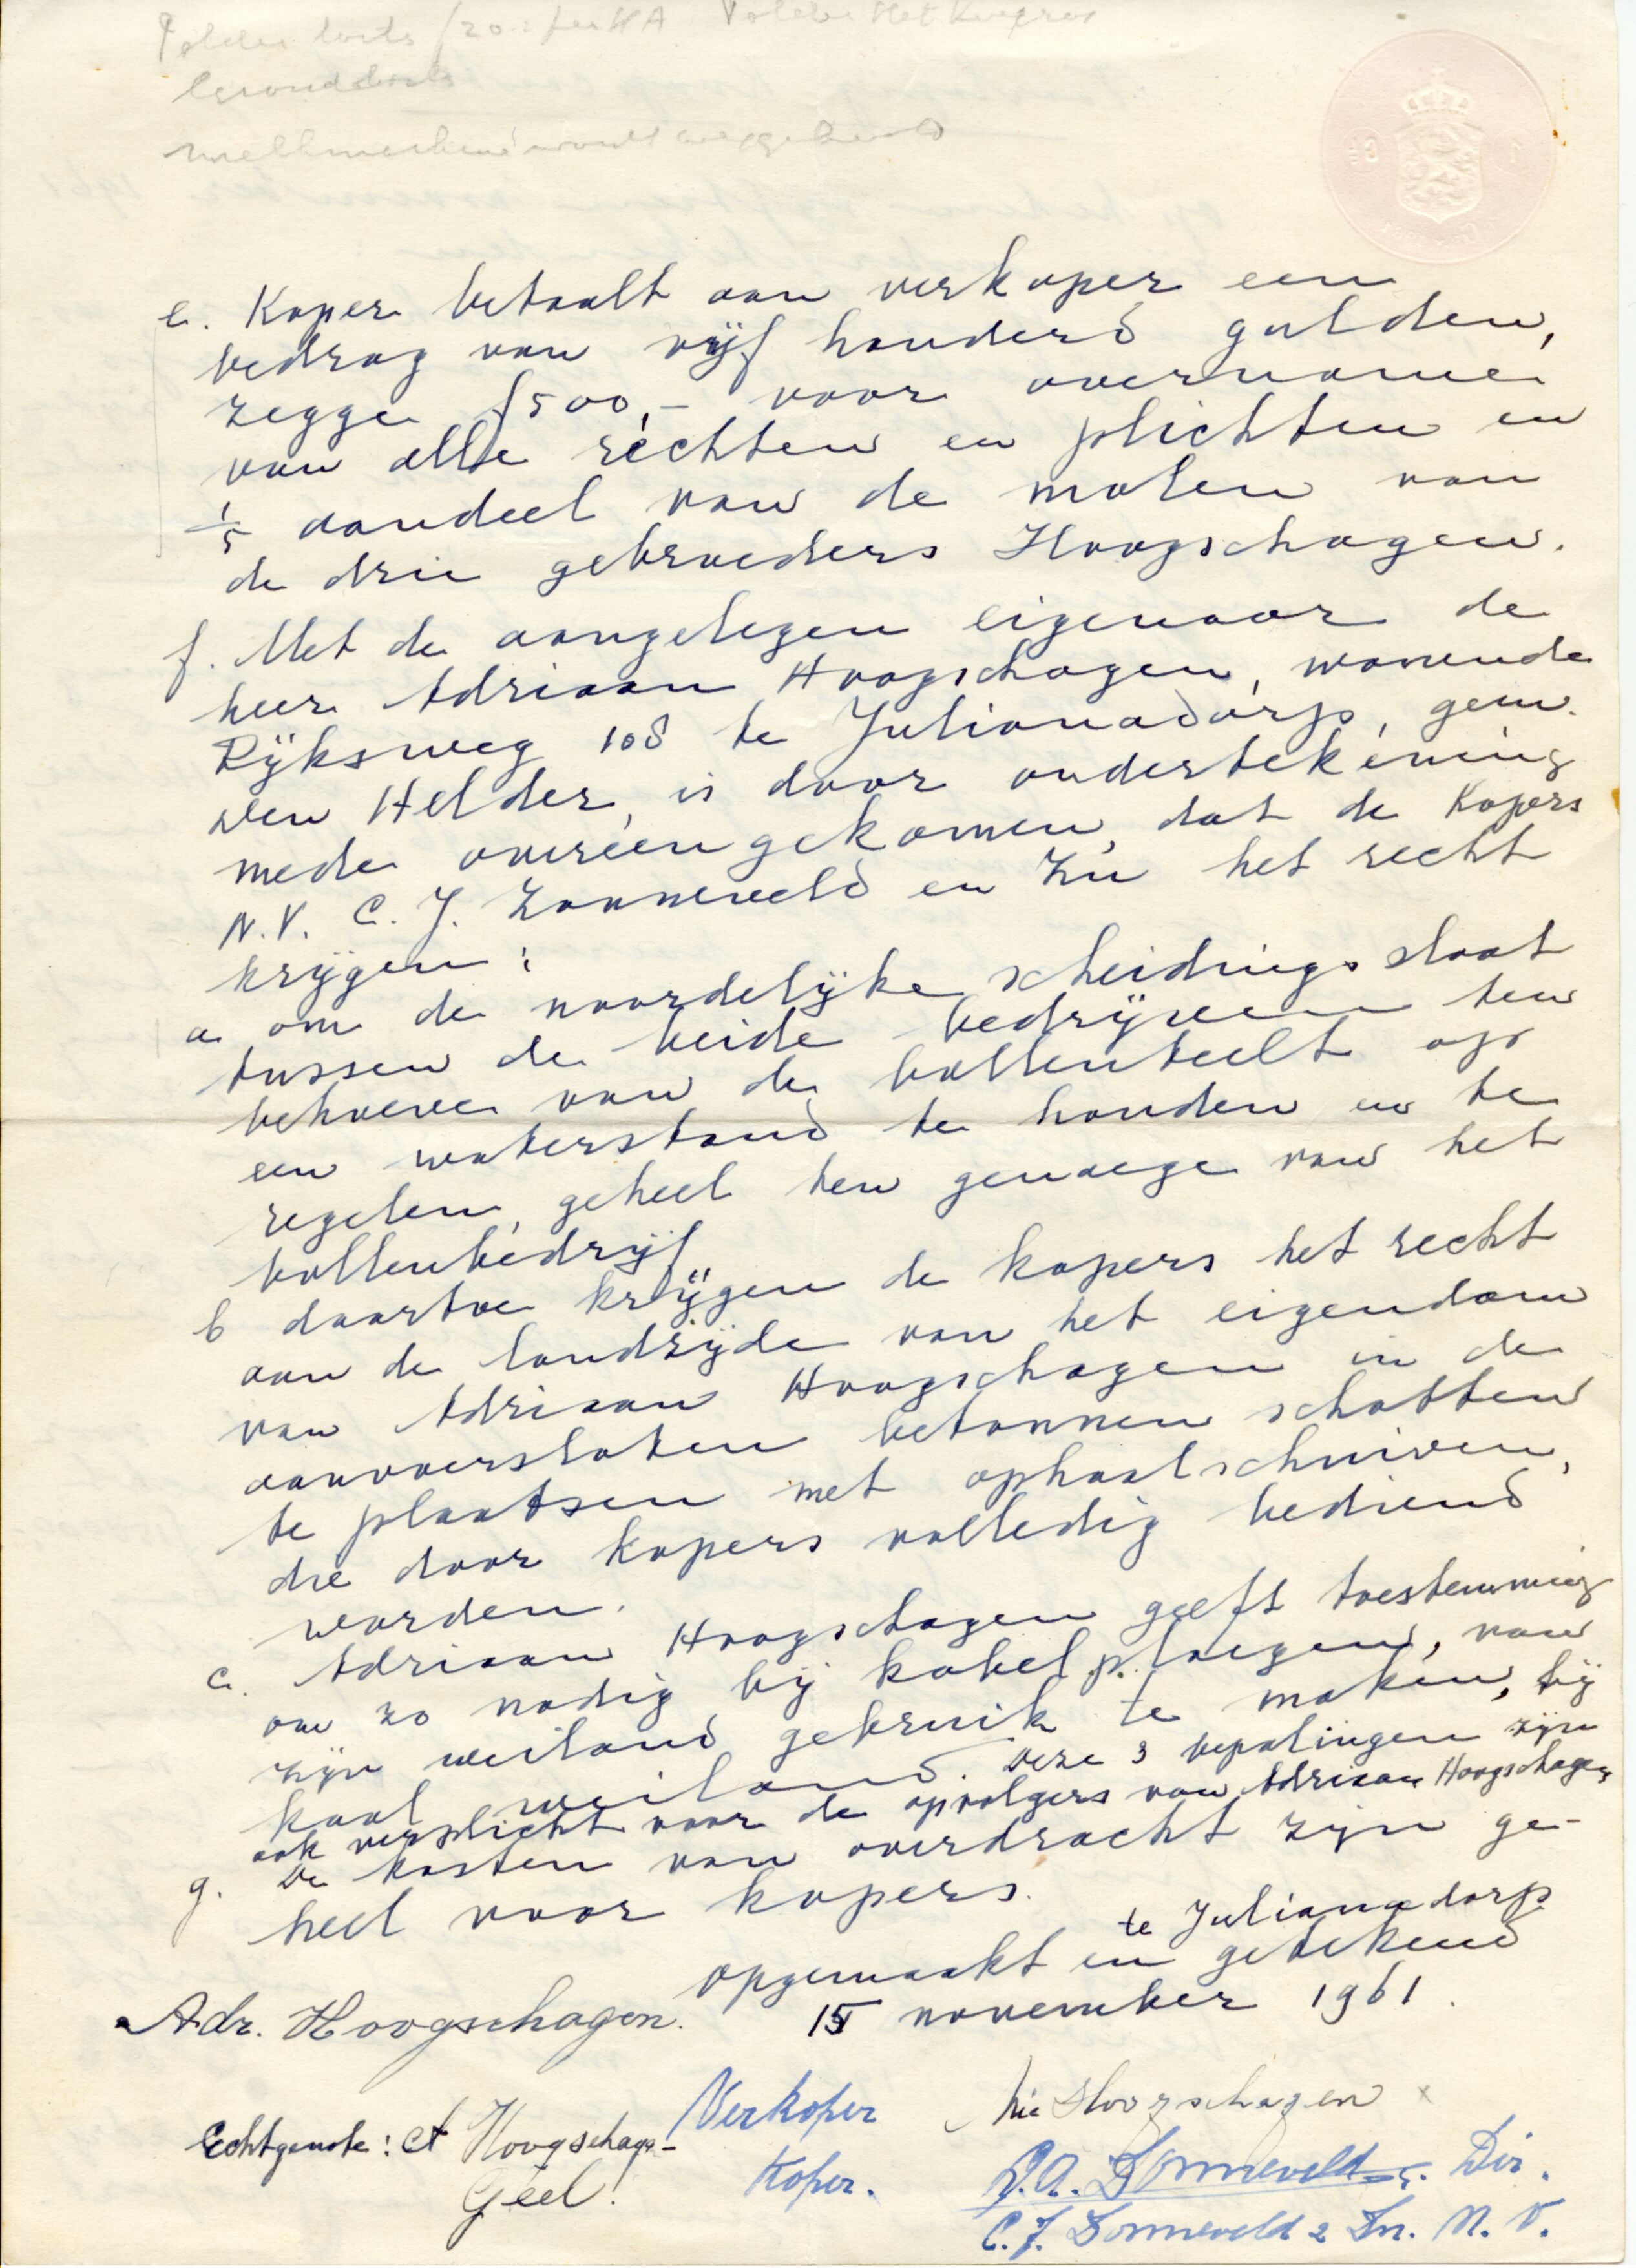 Polder lasts f20.= per HA Polder Het
Grondlasts
e. Koper betaalt aan verkoper een
bedrag van vijf honderd gulden,
zegge f500,- voor overname
van alle rechten en plichten en
1/5 aandeel van de molen van
de drie gebroeders Hoogschagen.
f. Met de aangelegen eigenaar de
heer Adriaan Hoogschagen, wonende
Rijksweg 108 te Julianadorp, gem.
den Helder, is door ondertekening
mede overeengekomen, dat de Kopers
N.V. C. J. Zonneveld en Zn het recht
krijgen:
a om de noordelijke scheidingssloot
tussen de beide bedrijven ten
behoeve van de bollenteelt op
een waterstand te houden en te
regelen, geheel ten genoege van het
bollenbedrijf
b daartoe krijgen de kopers het recht
aan de landzijde van het eigendom
van Adriaan Hoogschagen in de
aanvoersloten betonnen schotten
te plaatsen met ophaalschuiven,
die door kopers volledig bediend
worden.
c. Adriaan Hoogschagen geeft toestemming
om zo nodig bij kabelploegen, van
zijn weiland gebruik te maken, bij
kaal weiland. Deze 3 bepalingen zijn
ook verplicht voor de opvolgers van Adriaan Hoogschagen
g. De kosten van overdracht zijn ge-
heel voor kopers.
te Julianadorp
opgemaakt en getekend
15 november 1961.
Adr. Hoogschagen.
Verkoper Hoogschagen x
Echtgenote: Hoogschage-
Geel.
Koper. Zonneveld Dir.
C. J. Zonneveld & Zn. N. V.